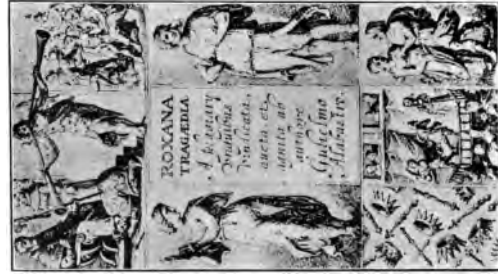 ROXANA
TRAGÆDIA
A plagiarij
unguibus
vindicata,
aucta, et
agnita ab
authore
Gulielmo
Alabastro.